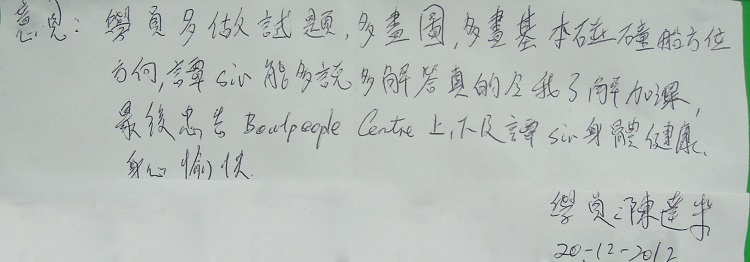 意見：學員多做試題，多畫圖，多畫基本碰撞船方位
方向，譚sir能多說多解答真的令我了解加深，
最後忠告Boatpeople Centre上，下及譚sir身體健康，
身心愉快
學員：陳達
20-12-2012